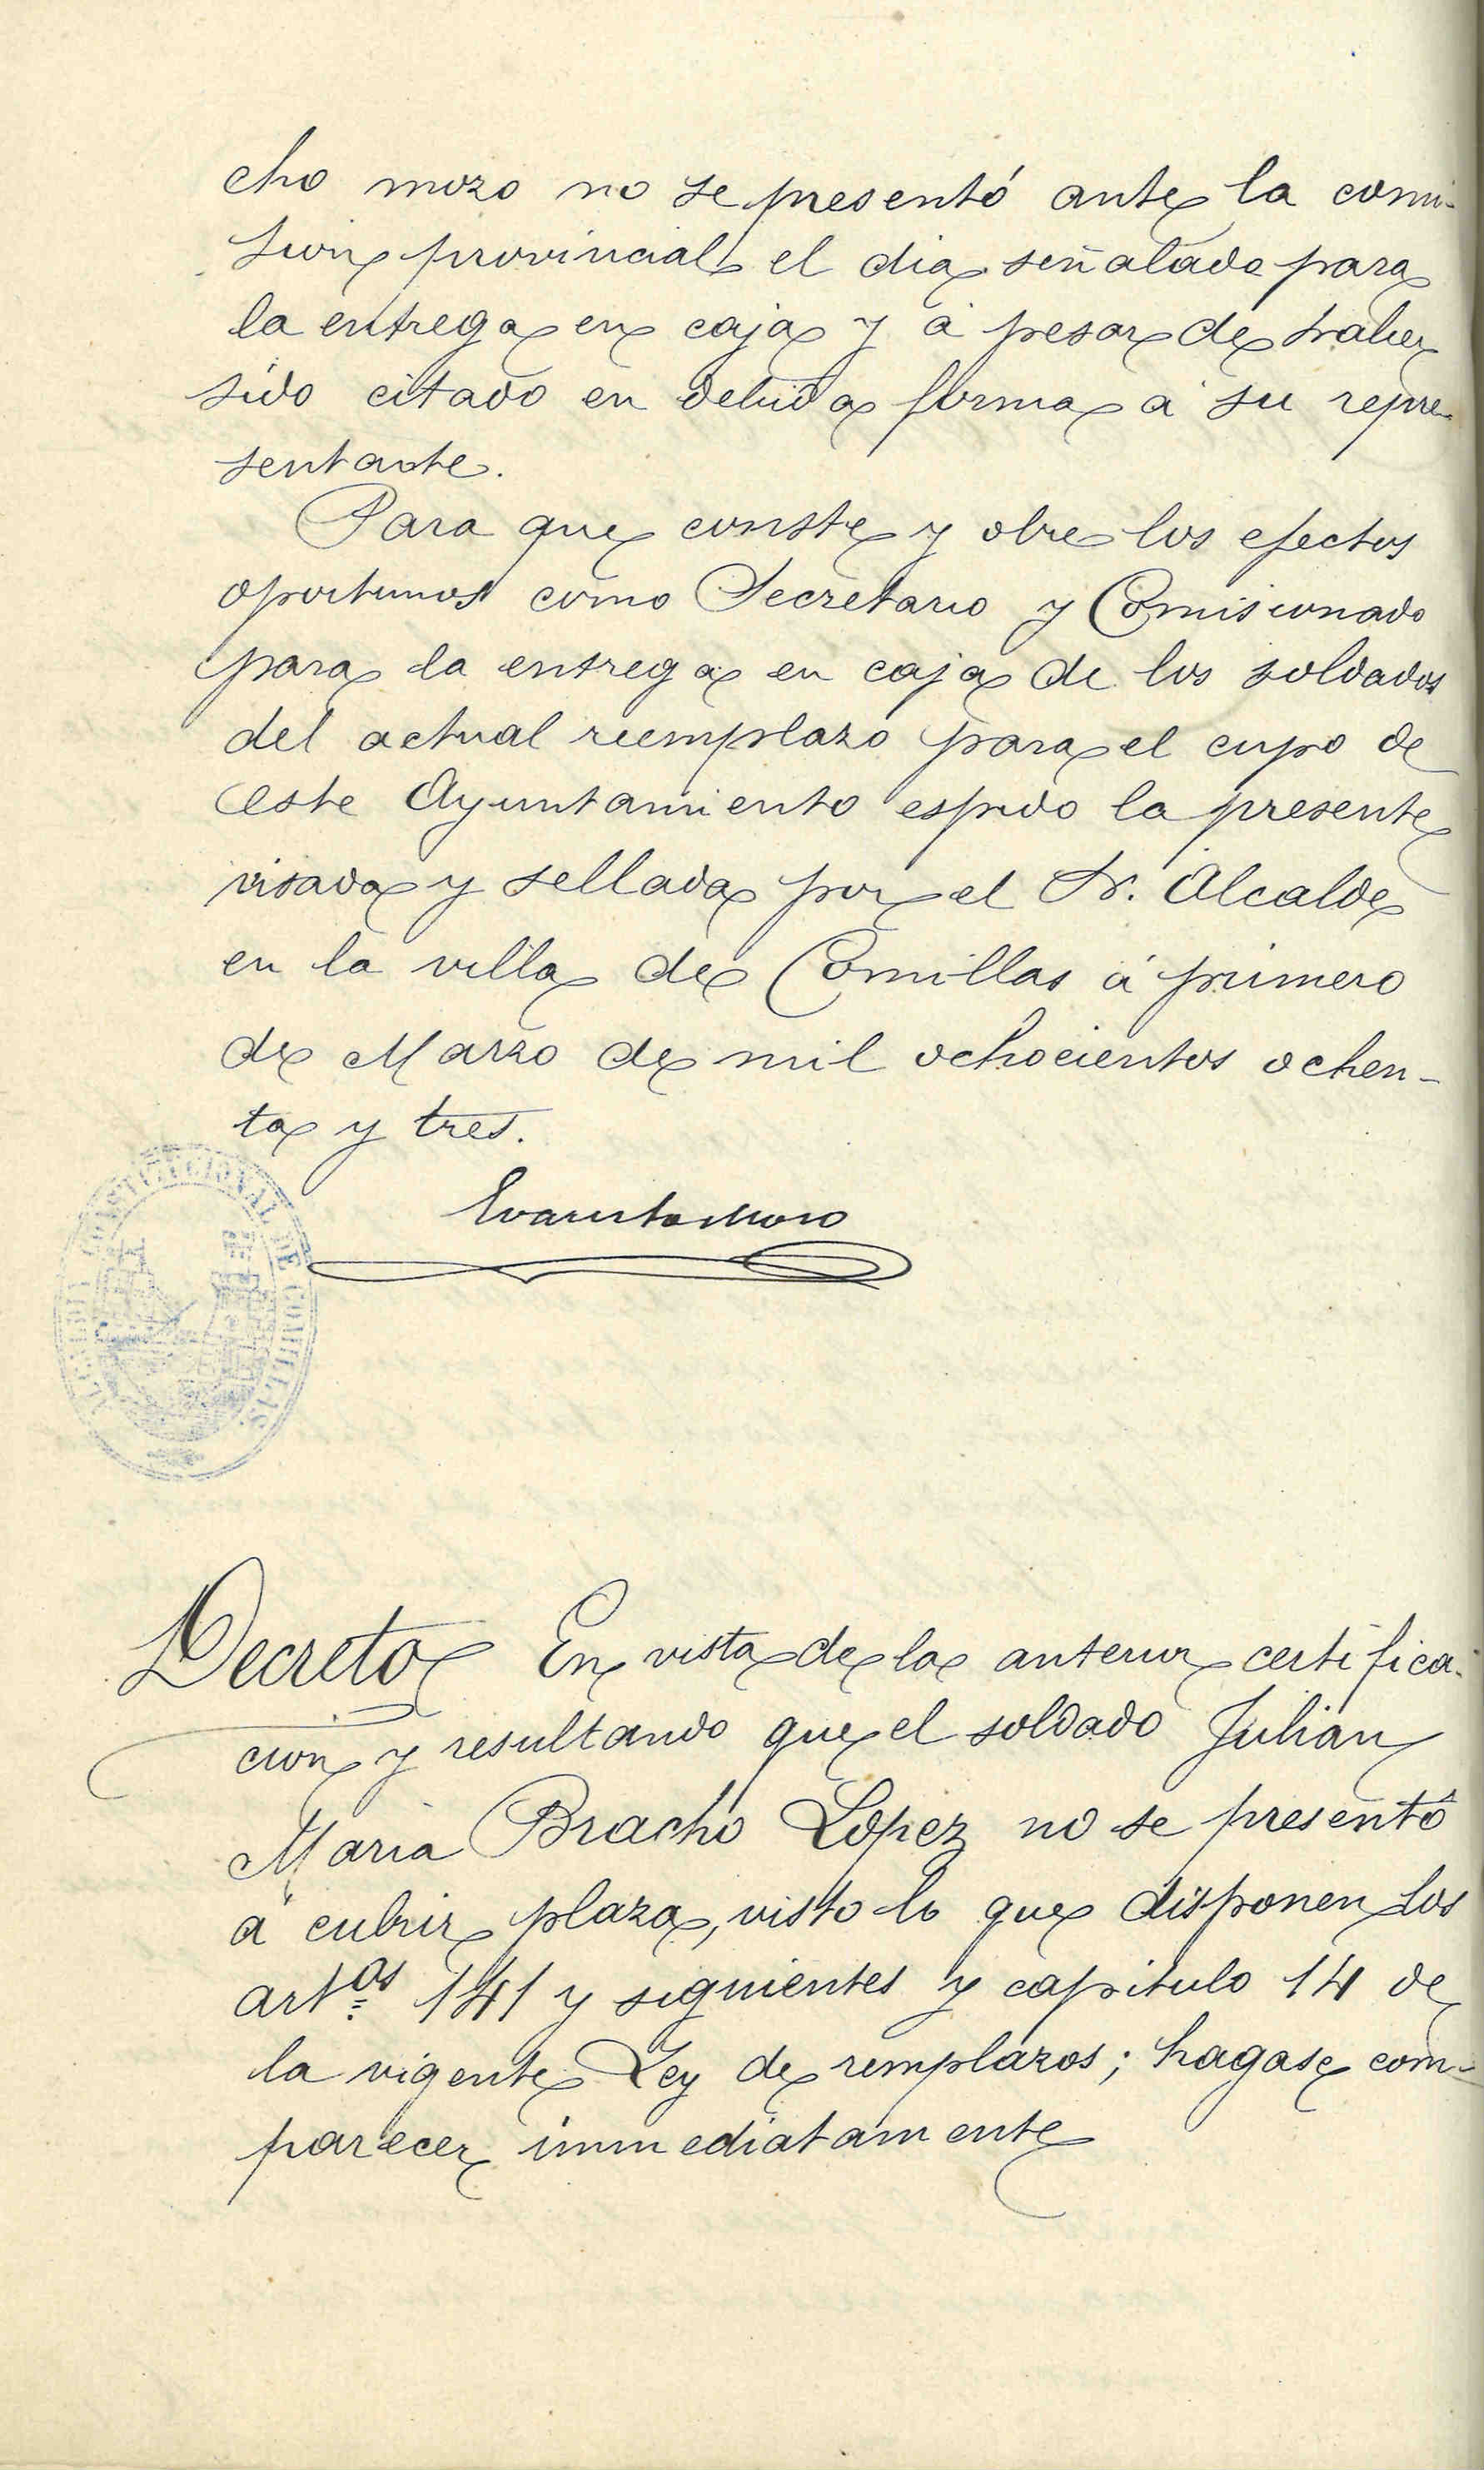 cho mozo no se presentó ante la comi-
sion provincial el dia señalado para
la entrega en caja y á pesar de haber
sido citado en debida forma á su repre-
sentante.
Para que conste y obre los efectos
oportunos como Secretario y Comisionado
para la entrega en caja de los soldados
del actual reemplazo para el cupo de
este Ayuntamiento espido la presente
visada y sellada por el Sr. Alcalde
en la villa de Comillas á primero
de Marzo de mil ochocientos ochen-
ta y tres.
Evaristo Moro
CONSTITUCIONAL DE COMILLAS
Decreto En vista de la anterior certifica-
cion y resultando que el soldado Julian
Maria Bracho Lopez no se presentó
á cubrir plaza, visto lo que disponen los
artos 141 y siguientes y capitulo 14 de
la vigente Ley de remplazos; hagase com-
parecer inmediatamente